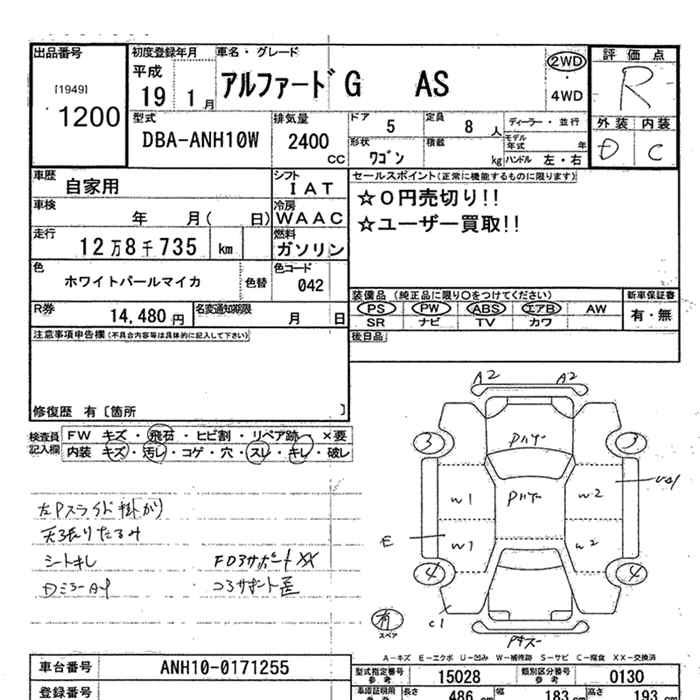 出品番号
[1949]
1200
初度登録年月
平成
19 1月
車名・グレード
アルファード G AS
2WD
・
4WD
評価点
R
外装 内装
D C
型式
DBA-ANH10W
排気量
2400
cc
ドア 5
定員 8 人
形状 ワゴン
積載 kg
ディーラー・並行
モデル年式 年
ハンドル 左・右
車歴 自家用
シフト
IAT
車検 年 月( 日)
冷房
WAAC
走行 12万8千735 km
燃料
ガソリン
色 ホワイトパールマイカ 色替
色コード
042
R券 14,480 円
名変通知期限 月 日
セールスポイント(正常に機能するものに限ります)
☆0円売切り!!
☆ユーザー買取!!
装備品 (純正品に限り○をつけてください)
PS PW ABS エアB AW
SR ナビ TV カワ
新車保証書
有・無
後日品
注意事項申告欄(不具合内容等は具体的に記入して下さい)
修復歴 有 [箇所 ]
検査員記入欄
FW キズ・飛石・ヒビ割・リペア跡・×要
内装 キズ・汚レ・コゲ・穴・スレ・キレ・破レ
左Pスライド掛がり
天張りたるみ
シートキレ
FDアサポートXX
コアサポート歪
A2 A2
3 3
W1 W2
W1 W2
E
4 4
C1
有
スペア
A-キズ E-エクボ U-凹み W-補修跡 S-サビ C-腐食 XX-交換済
車台番号 ANH10-0171255
登録番号
型式指定番号
参考
15028
類別区分番号
参考
0130
車庫証明用
参考
長さ 486 cm 幅 183 cm 高さ 193 cm